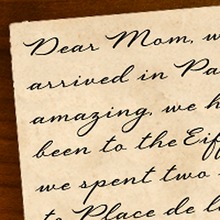 Dear Mom,
arrived in
amazing, we
been to the
we spent two
to Place de